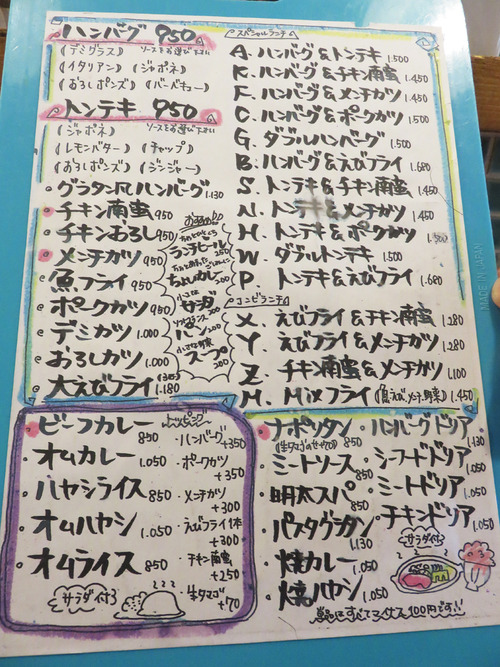 ハンバーグ 950
(デミグラス) ソースをお選び下さい
(イタリアン) (ジャポネ)
(おろしポンズ) (バーベキュー)
トンテキ 950
(ジャポネ) ソースをお選び下さい
(レモンバター) (チャップ)
(おろしポンズ) (ジンジャー)
・グラタン風ハンバーグ 1.130
・チキン南蛮 950
・チキンおろし 950
・メンチカツ 950
・魚フライ 950
・ポークカツ 950
・デミカツ 1.000
・おろしカツ 1.000
・大えびフライ 1.180
ランチビール 250
ちょいカレー 200
サラダ
パン 200
スープ 200
スペシャルランチ
A. ハンバーグ&トンテキ 1.500
K. ハンバーグ&チキン南蛮 1.450
F. ハンバーグ&メンチカツ 1.450
C. ハンバーグ&ポークカツ 1.500
G. ダブルハンバーグ 1.500
B. ハンバーグ&えびフライ 1.680
S. トンテキ&チキン南蛮 1.450
N. トンテキ&メンチカツ 1.450
H. トンテキ&ポークカツ 1.500
W. ダブルトンテキ 1.500
P. トンテキ&えびフライ 1.680
コンビランチ
X. えびフライ&チキン南蛮 1.280
Y. えびフライ&メンチカツ 1.280
Z. チキン南蛮&メンチカツ 1.100
M. Mixフライ 1.450
・ビーフカレー 850
・オムカレー 1.050
・ハヤシライス 850
・オムハヤシ 1.050
・オムライス 850
サラダ付
トッピング
・ハンバーグ +350
・ポークカツ +350
・メンチカツ +300
・えびフライ1本 +300
・チキン南蛮 +250
・生タマゴ +70
・ナポリタン 850
・ミートソース 850
・明太スパ 850
・パスタグラタン 1.130
・焼カレー 1.050
・焼ハヤシ 1.050
・ハンバーグドリア 1.130
・シーフードドリア 1.050
・ミートドリア 1.050
・チキンドリア 1.050
サラダ付
MADE IN JAPAN